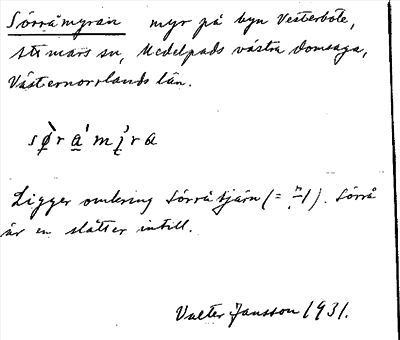 Sörråmyran myr på byn Västerböle,
Attmars sn, Medelpads västra domsaga,
Västernorrlands län.
Ligger omkring Sörråtjärn (= "–/). Sörrå
är en slåtter intill.
Valter Jansson 1931.